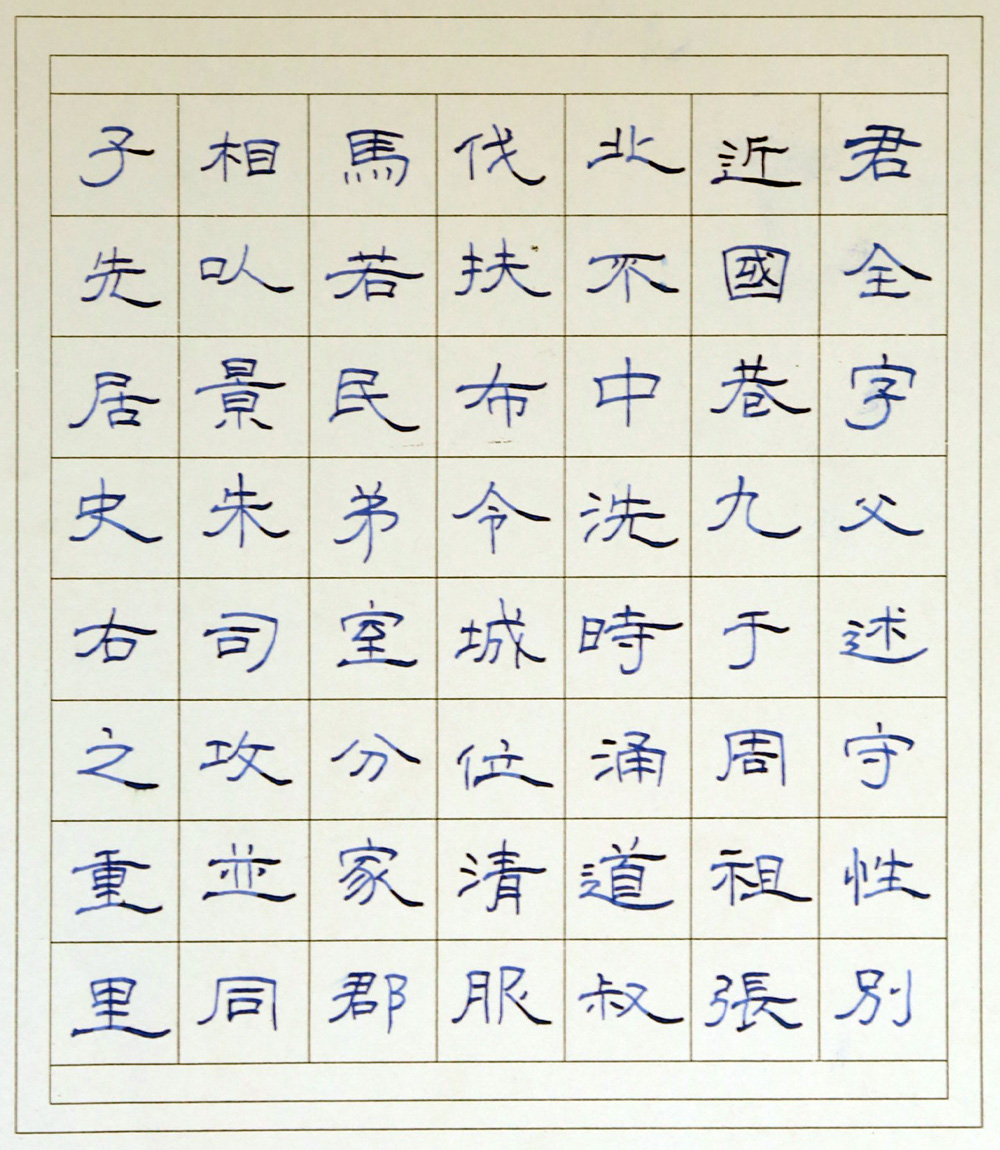 君全字父述守性別
近國巷九于周祖張
北不中洗時涌道叔
伐扶布令城位清服
馬若民弟室分家郡
相㕥景朱司攻並同
子先居史右之重里